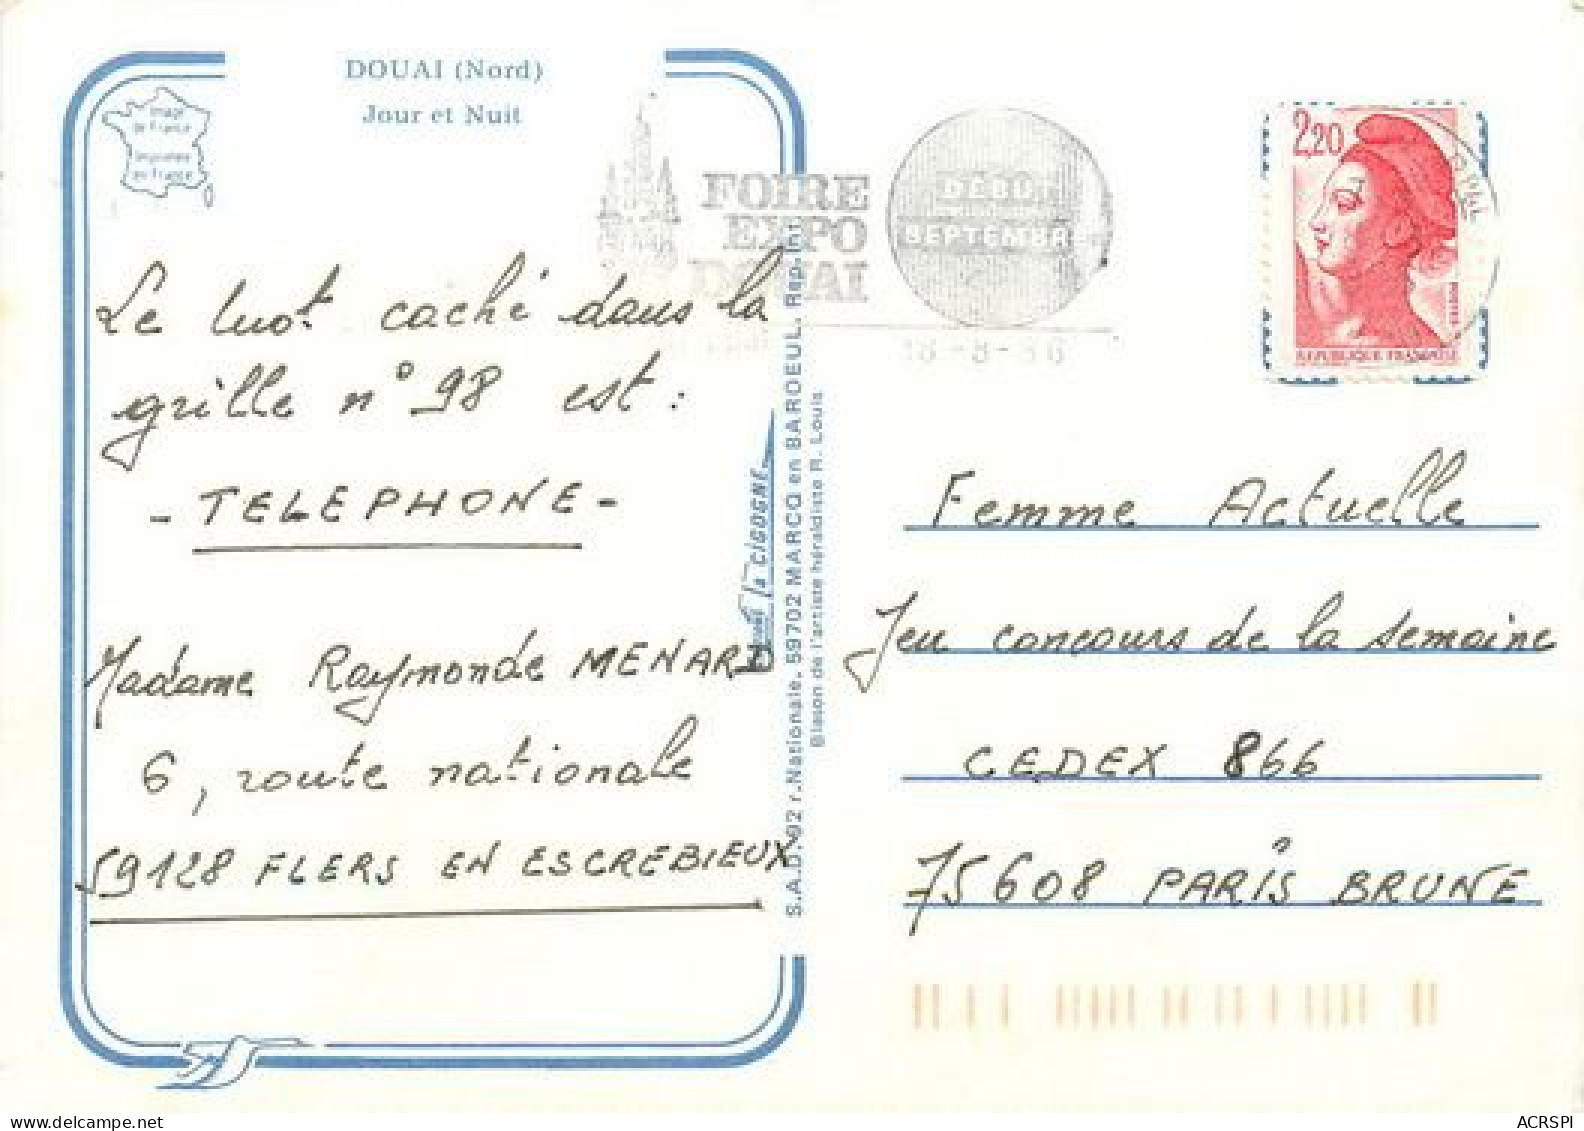 DOUAI (Nord)
Jour et Nuit
Image
de France
Imprimée
en France
FOIRE
EXPO
DOUAI
DÉBUT
SEPTEMBRE
2,20
REPUBLIQUE FRANÇAISE
Le mot caché dans la
grille n° 98 est :
- TELEPHONE -
Madame Raymonde MENARD
6, route nationale
59128 FLERS EN ESCREBIEUX
la CIGOGNE
S.A.D. 92 r. Nationale. 59702 MARCQ en BAROEUL. Rep. Int.
Blason de l'artiste héraldiste R. Louis
Femme Actuelle
Jeu concours de la semaine
CEDEX 866
75608 PARIS BRUNE
delcampe.net
ACRSPI